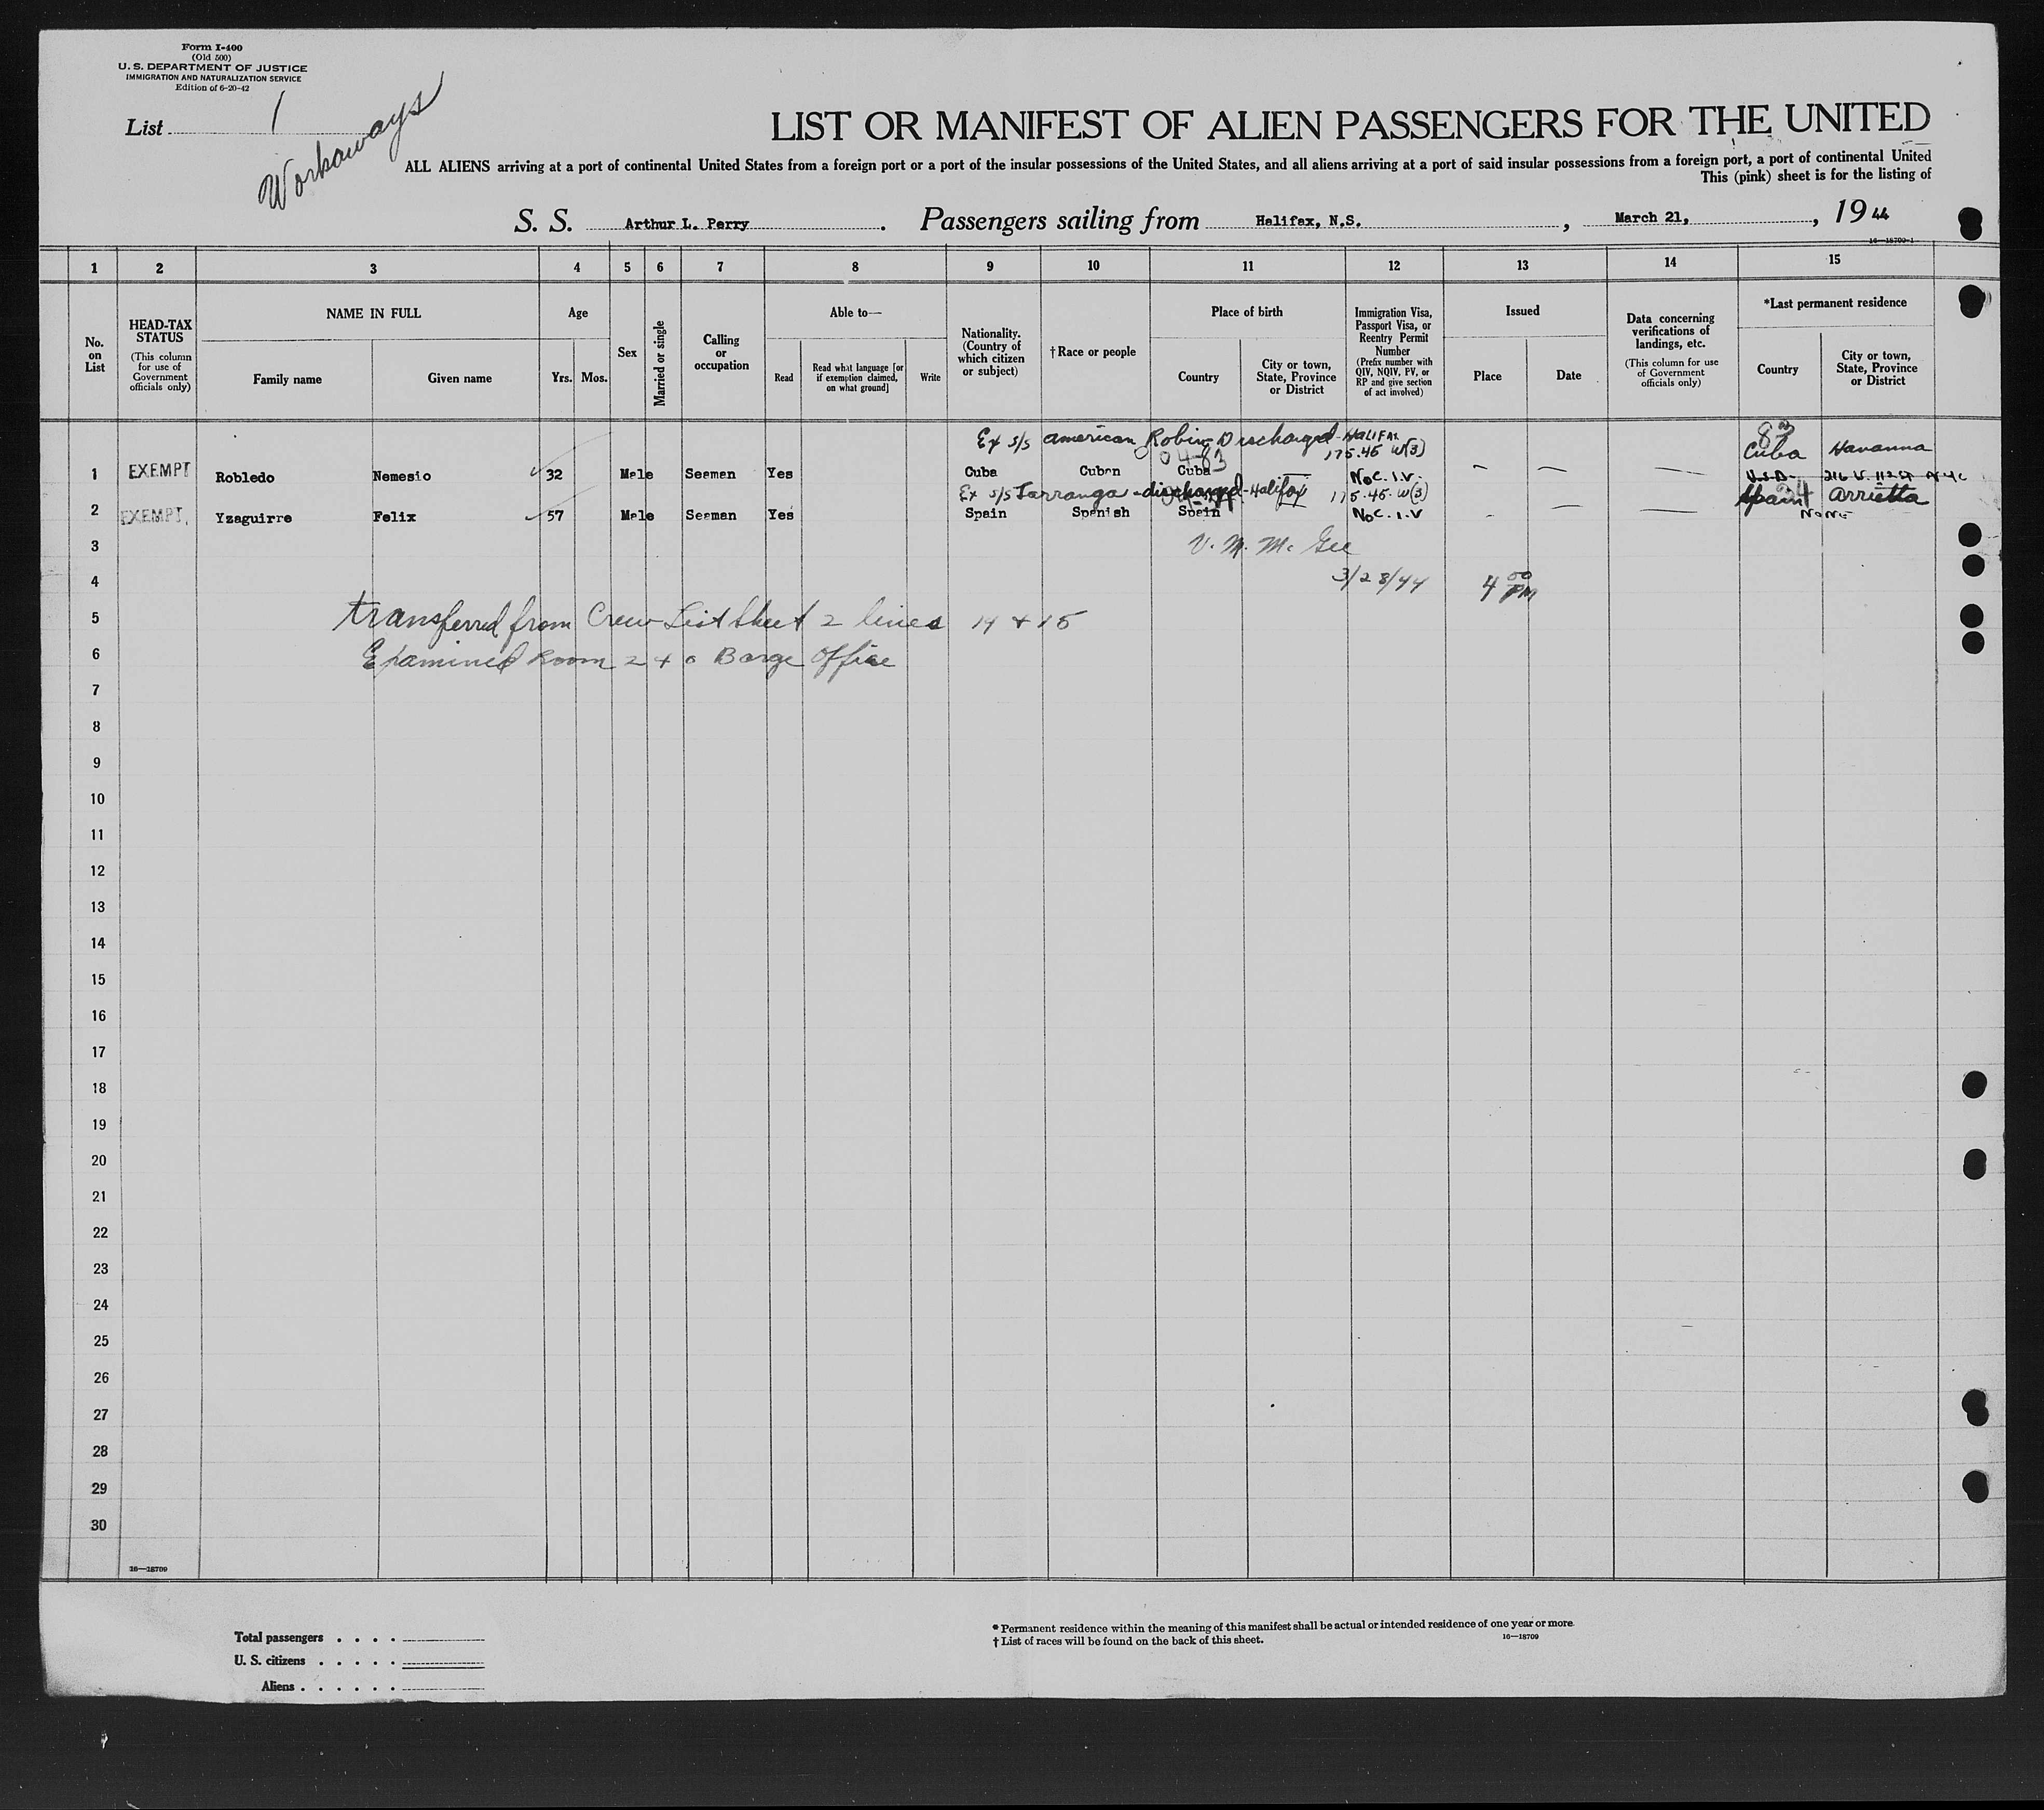 Form I-400
(Old 500)
U. S. DEPARTMENT OF JUSTICE
IMMIGRATION AND NATURALIZATION SERVICE
Edition of 6-20-42
List 1
Workaways
LIST OR MANIFEST OF ALIEN PASSENGERS FOR THE UNITED
ALL ALIENS arriving at a port of continental United States from a foreign port or a port of the insular possessions of the United States, and all aliens arriving at a port of said insular possessions from a foreign port, a port of continental United
This (pink) sheet is for the listing of
S. S. Arthur L. Perry. Passengers sailing from Halifax, N.S., March 21, 1944
16—18709-1
1 2 3 4 5 6 7 8 9 10 11 12 13 14 15
No. on List
HEAD-TAX STATUS
(This column for use of Government officials only)
NAME IN FULL
Family name
Given name
Age
Yrs. Mos.
Sex
Married or single
Calling or occupation
Able to—
Read
Read what language [or if exemption claimed, on what ground]
Write
Nationality. (Country of which citizen or subject)
†Race or people
Place of birth
Country
City or town, State, Province or District
Immigration Visa, Passport Visa, or Reentry Permit Number
(Prefix number with QIV, NQIV, PV, or RP and give section of act involved)
Issued
Place
Date
Data concerning verifications of landings, etc.
(This column for use of Government officials only)
*Last permanent residence
Country
City or town, State, Province or District
Ex s/s american Robin Discharged - HALIFAX
83
04-83 175.45 W(3) Cuba Havanna
1 EXEMPT Robledo Nemesio 32 Male Seaman Yes Cuba Cuban Cuba No C. I. V. — — — U.S.A. 216 W. 112 St NYC
Ex s/s Tarranga - discharged - Halifax 175.45. W(3) Spain Arrietta
2 EXEMPT. Yzaguirre Felix 57 Male Seaman Yes Spain Spanish Spain No C. I. V - — — NONE
3 V. M. McGee
4 3/28/44 4 00 PM
5 transferred from Crew List Sheet 2 lines 14 + 15
6 Examined Room 240 Barge Office
7
8
9
10
11
12
13
14
15
16
17
18
19
20
21
22
23
24
25
26
27
28
29
30
16—18709
Total passengers . . . .
U. S. citizens . . . . .
Aliens . . . . . .
* Permanent residence within the meaning of this manifest shall be actual or intended residence of one year or more.
† List of races will be found on the back of this sheet.
16—18709